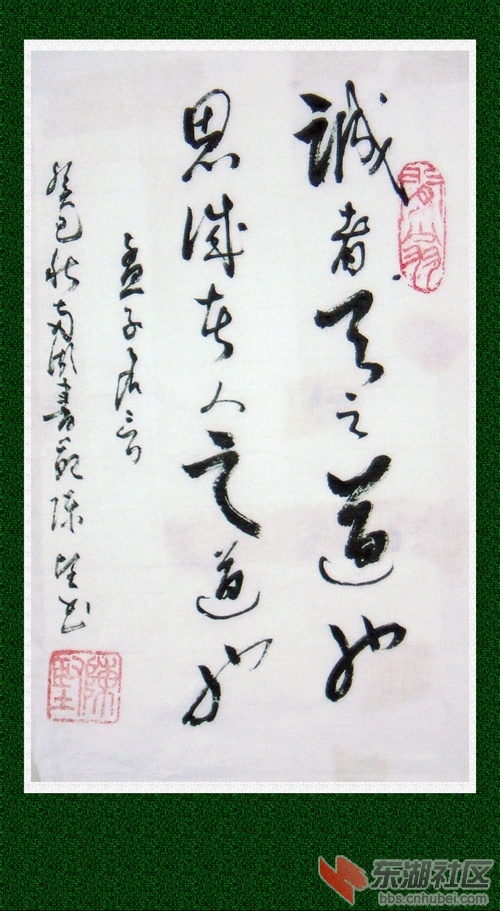 誠者天之道也
思誠者人之道也
孟子名言
癸巳秋南湖書 陳堅书
陳堅
东湖社区
bbs.cnhubei.com